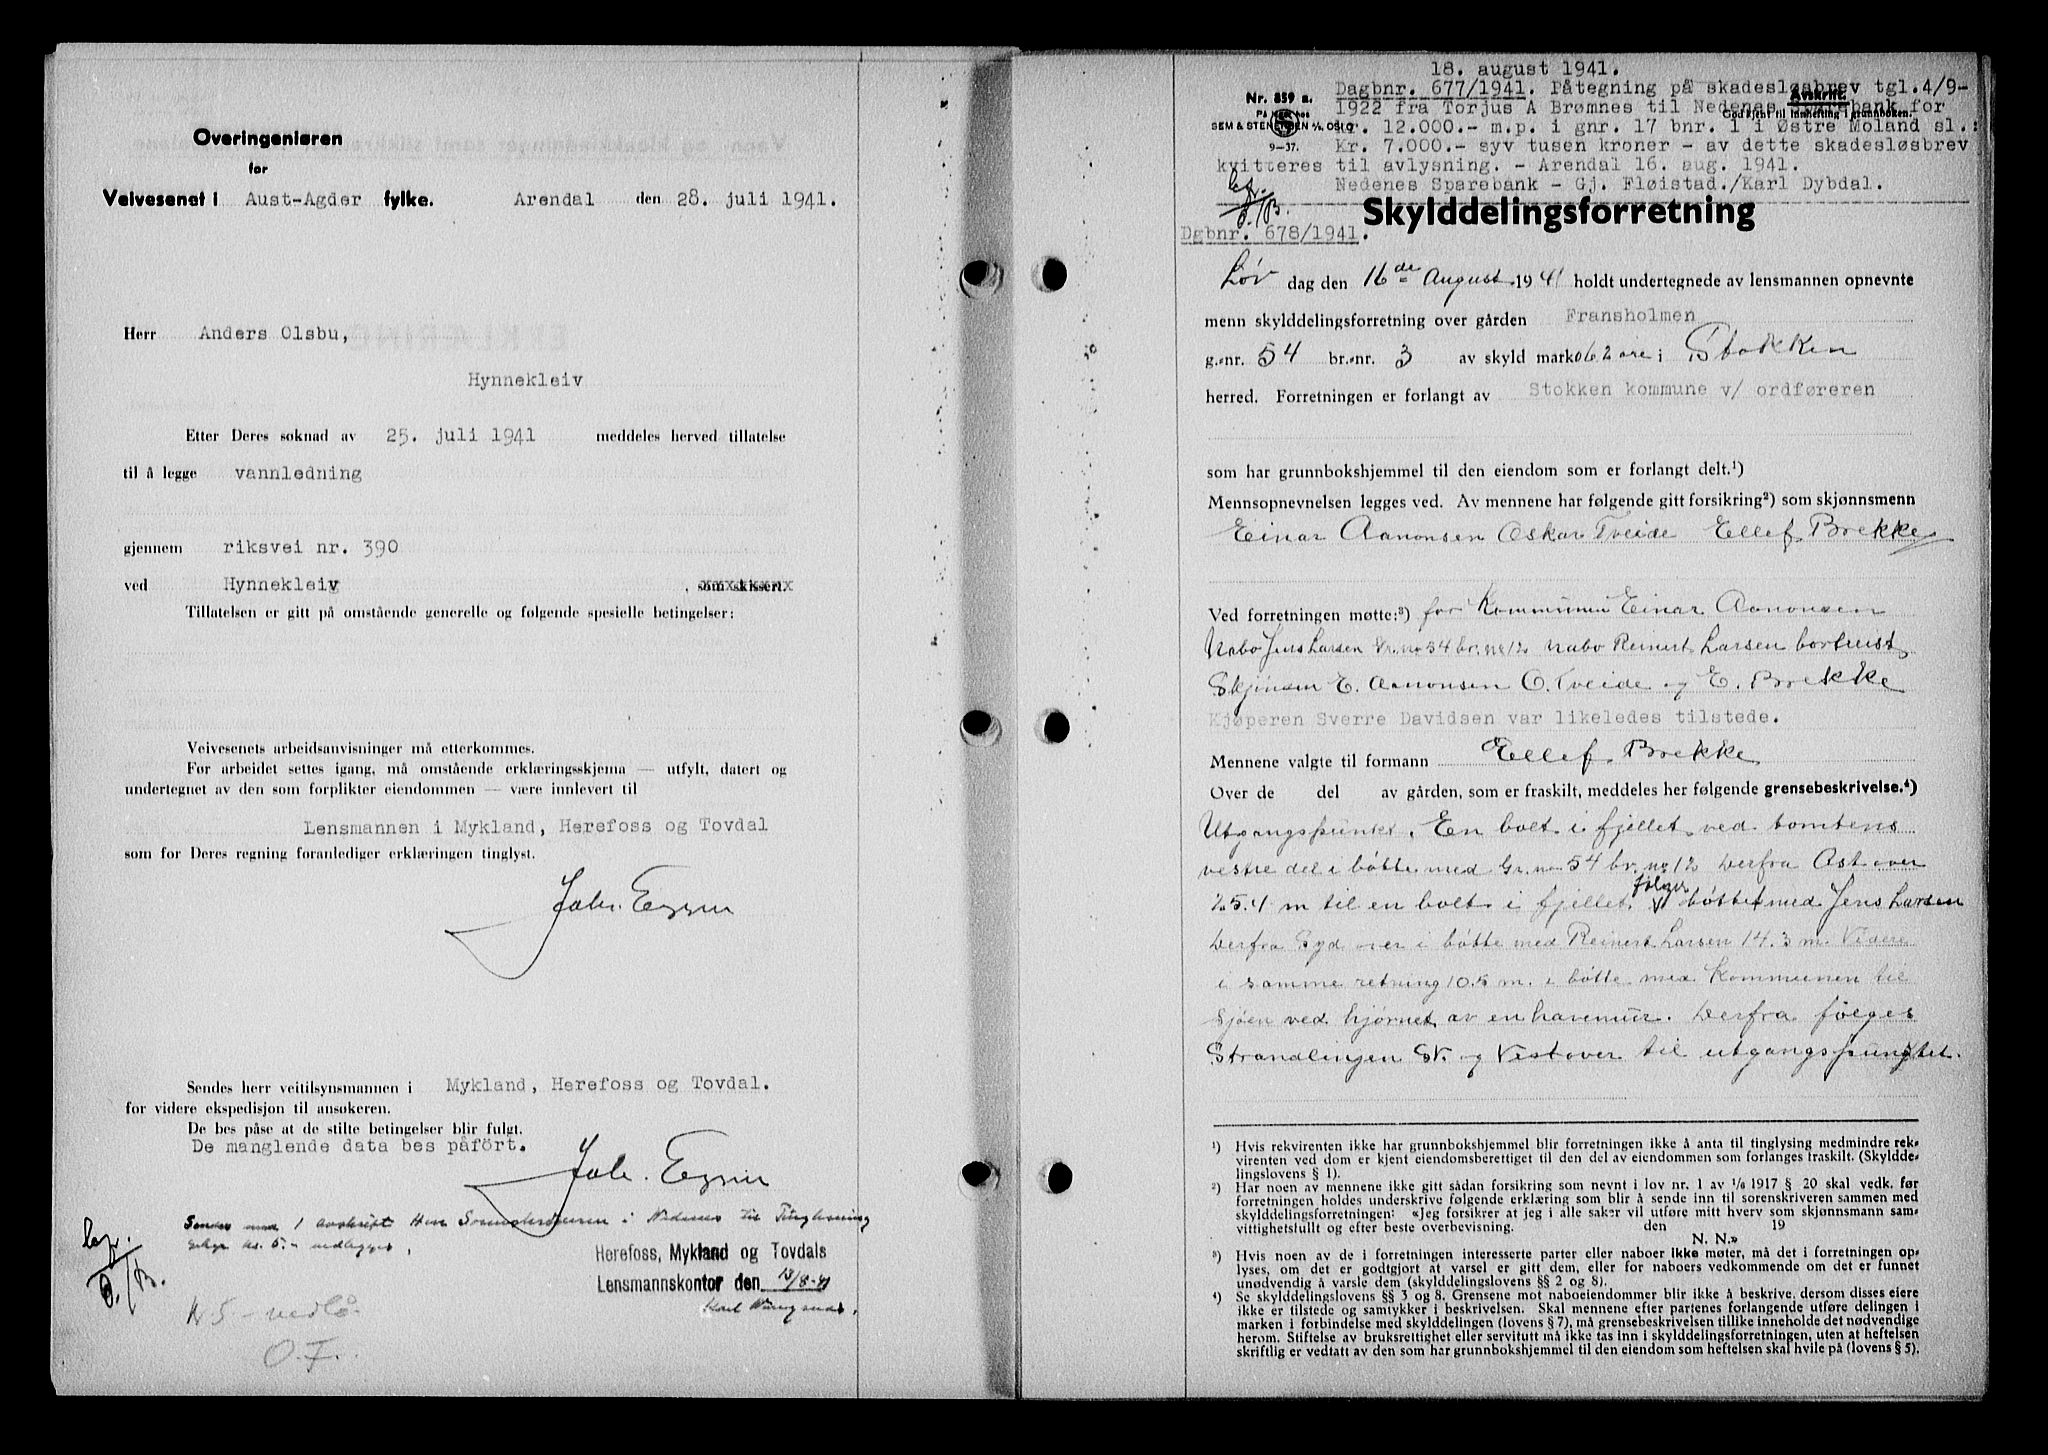 Overingeniøren
for
Veivesenet i Aust-Agder fylke. Arendal den 28. juli 1941.
Herr Anders Olsbu,
Hynnekleiv
Etter Deres søknad av 25. juli 1941 meddeles herved tillatelse
til å legge vannledning
gjennem riksvei nr. 390
ved Hynnekleiv , som skissert.
Tillatelsen er gitt på omstående generelle og følgende spesielle betingelser:
Veivesenets arbeidsanvisninger må etterkommes.
For arbeidet settes igang, må omstående erklæringsskjema — utfylt, datert og
undertegnet av den som forplikter eiendommen — være innlevert til
Lensmannen i Mykland, Herefoss og Tovdal
som for Deres regning foranlediger erklæringen tinglyst.
Sendes herr veitilsynsmannen i Mykland, Herefoss og Tovdal.
for videre ekspedisjon til ansøkeren.
De bes påse at de stilte betingelser blir fulgt.
De manglende data bes påført.
Sendes med 1 avskrift Herr Sorenskriveren i Nedenes til Tinglysning
Gebyr kr. 5.- vedlegges.
Herefoss, Mykland og Tovdals
Lensmannskontor den 13/8-41
Kr 5 - vedlå.
O. F.
18. august 1941.
Dagbnr. 677/1941. Påtegning på skadesløsbrev tgl. 4/9-
1922 fra Torjus A Brømnes til Nedenes Sparebank for
kr. 12.000.- m.p. i gnr. 17 bnr. 1 i Østre Moland sl.:
Kr. 7.000.- syv tusen kroner - av dette skadesløsbrev
kvitteres til avlysning. - Arendal 16. aug. 1941.
Nedenes Sparebank - Gj. Fløistad./Karl Dybdal.
Nr. 859 a.
På lager hos
SEM & STENERSEN A/S OSLO
9-37.
Avskrift.
Godkjent til innheftning i grunnboken.
Skylddelingsforretning
Dgbnr. 678/1941.
Lør dag den 16de August 1941 holdt undertegnede av lensmannen opnevnte
menn skylddelingsforretning over gården Fransholmen
g.-nr. 54 br.-nr. 3 av skyld mark 062 øre i Stokken
herred. Forretningen er forlangt av Stokken kommune v/ ordføreren
som har grunnbokshjemmel til den eiendom som er forlangt delt.¹)
Mennsopnevnelsen legges ved. Av mennene har følgende gitt forsikring²) som skjønnsmenn
Einar Aanonsen Oskar Tveide Ellef Brekke
Ved forretningen møtte:³) for Kommunen Einar Aanonsen
Nabo Jens Larsen Gr. no 54 br. no 12 Nabo Reinert Larsen bortreist
Skjønsm E. Aanonsen O. Tveide og E. Brekke
Kjøperen Sverre Davidsen var likeledes tilstede.
Mennene valgte til formann Ellef Brekke
Over de del av gården, som er fraskilt, meddeles her følgende grensebeskrivelse.⁴)
Utgangspunktet. En bolt i fjellet ved tomtens
vestre del i bøtte med Gr. no 54 br. no 12 Derfra Ost over
25.4 m til en bolt i fjellet følger bøttet med Jens Larsen
Derfra Syd over i bøtte med Reinert Larsen 14.3 m. Videre
i samme retning 10.5 m. i bøtte med Kommunen til
Sjøen ved hjørnet av en havemur. Derfra følges
Strandlinjen SV. og Vestover til utgangspunktet.
¹) Hvis rekvirenten ikke har grunnbokshjemmel blir forretningen ikke å anta til tinglysing medmindre rek-
virenten ved dom er kjent eiendomsberettiget til den del av eiendommen som forlanges fraskilt. (Skyldde-
lingslovens § 1).
²) Har noen av mennene ikke gitt sådan forsikring som nevnt i lov nr. 1 av 1/6 1917 § 20 skal vedk. før
forretningen holdes underskrive følgende erklæring som blir å sende inn til sorenskriveren sammen med
skylddelingsforretningen: «Jeg forsikrer at jeg i alle saker vil utføre mitt hverv som skjønnsmann sam-
vittighetsfullt og efter beste overbevisning. den 19
N. N.»
³) Hvis noen av de i forretningen interesserte parter eller naboer ikke møter, må det i forretningen op-
lyses, om det er godtgjort at varsel er gitt dem, eller for naboers vedkommende om det er funnet
unødvendig å varsle dem (skylddelingslovens §§ 2 og 8).
⁴) Se skylddelingslovens §§ 3 og 8. Grensene mot naboeiendommer blir ikke å beskrive, dersom disses eiere
ikke er tilstede og samtykker i beskrivelsen. Skal mennene efter partenes forlangende utføre delingen i
marken i forbindelse med skylddelingen (lovens § 7), må grensebeskrivelsen tillike inneholde det nødvendige
herom. Stiftelse av bruksrettighet eller servitutt må ikke tas inn i skylddelingsforretningen, uten at heftelsen
skriftlig er vedtatt av den som har grunnbokshjemmel til den eiendom som heftelsen skal hvile på (lovens § 5).